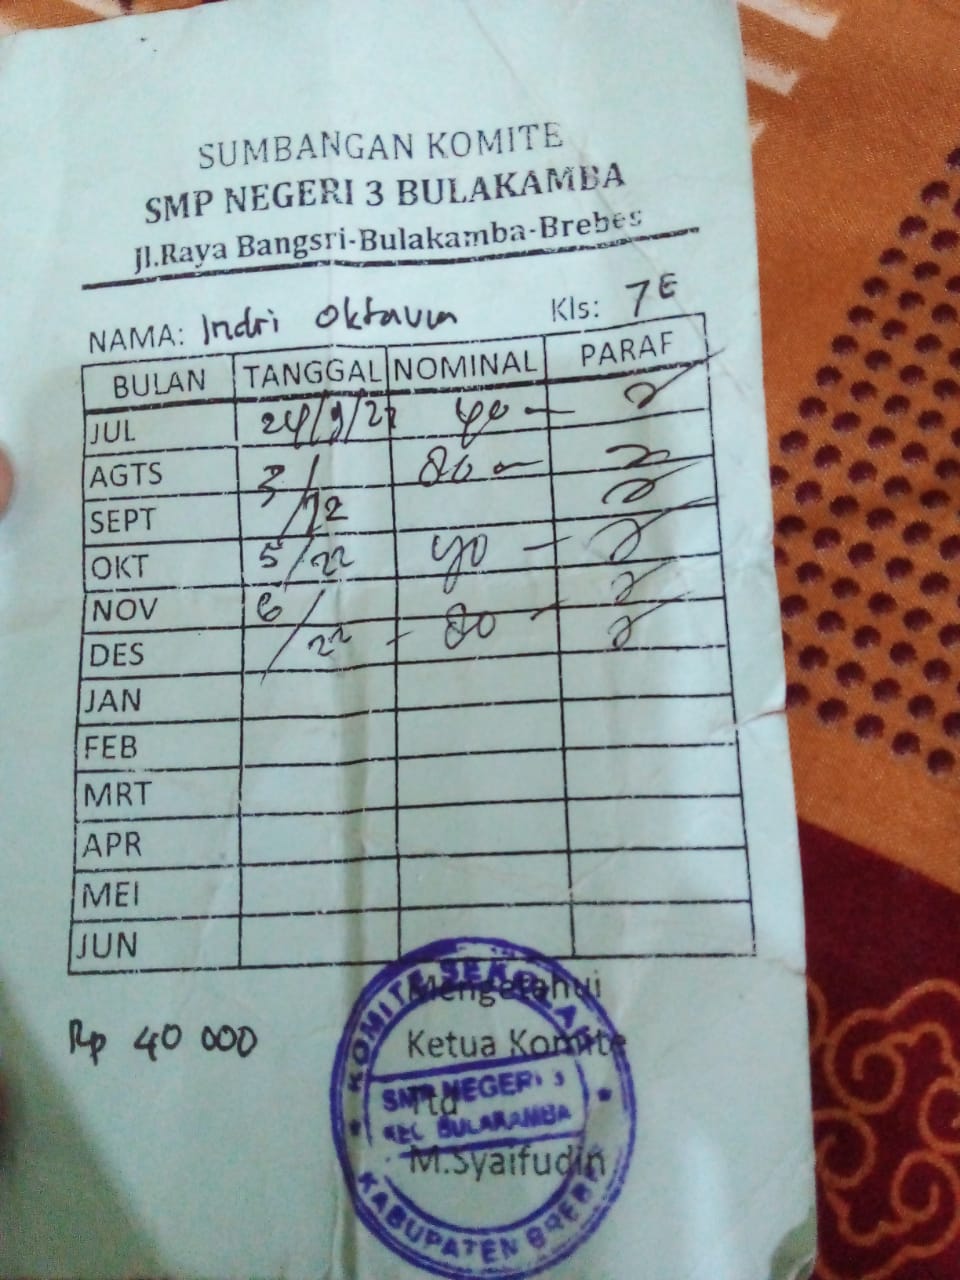 SUMBANGAN KOMITE
SMP NEGERI 3 BULAKAMBA
Jl.Raya Bangsri-Bulakamba-Brebes
NAMA: Indri Oktavia Kls: 7E
BULAN TANGGAL NOMINAL PARAF
JUL 40
AGTS 80
SEPT
OKT 5/22 40
NOV 6/
DES 22 80
JAN
FEB
MRT
APR
MEI
JUN
Rp 40 000
Mengetahui
Ketua Komite
Ttd
M.Syaifudin
KOMITE SEKOLAH
SMP NEGERI 3
KEC. BULAKAMBA
KABUPATEN BREBES